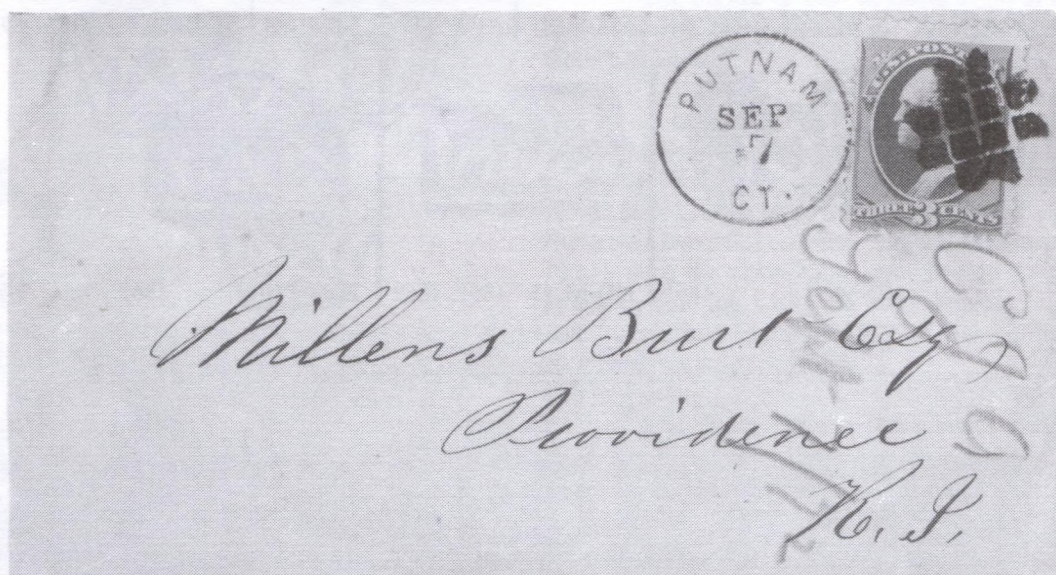 PUTNAM
SEP
7
CT.
U.S. POSTAGE
THREE 3 CENTS
Millens Burt Esq
Providence
R. I.
Sept